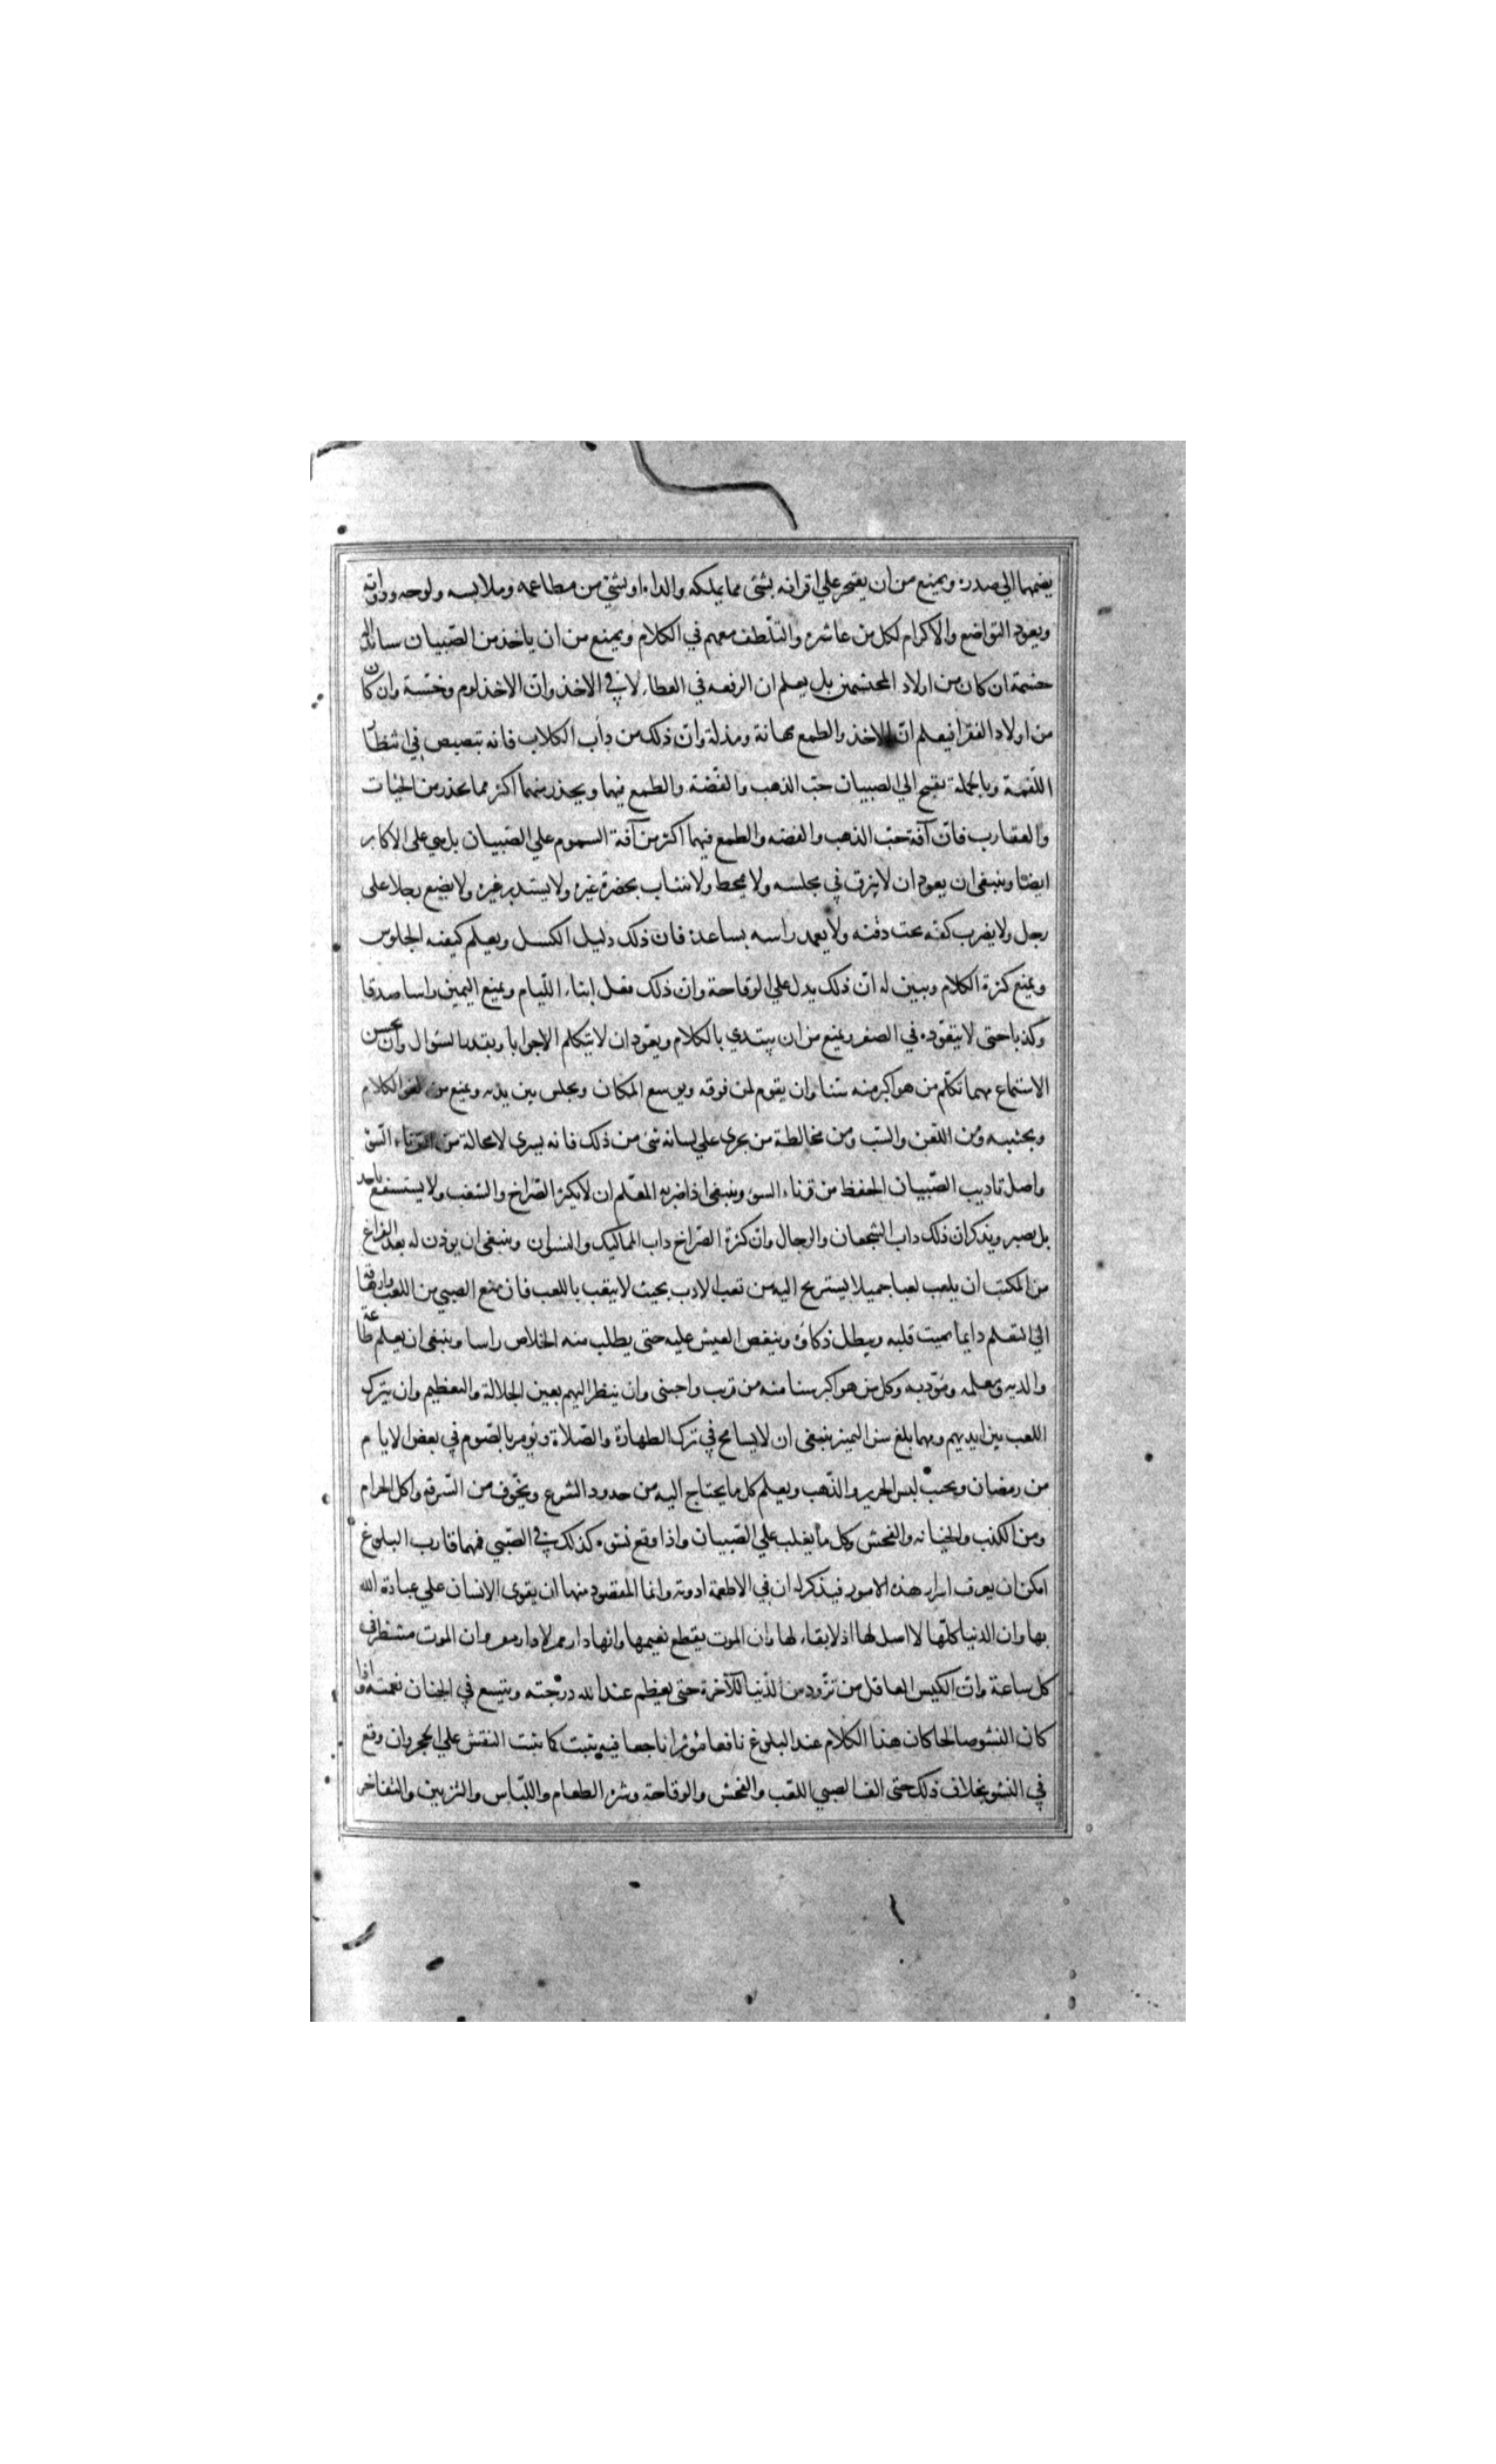 يضمهما الي صدره ويمنع من ان يفتخر علي اقرانه بشئ مما يملكه والداه او بشئ من مطاعمه وملابسه ولوحه ودواته
ويعود التواضع والاكرام لكل من عاشره والتلطف معهم في الكلام ويمنع من ان ياخذ من الصبيان
حشمة ان كان من اولاد المحتشمين بل يعلم ان الرفعه في العطاء لا في الاخذ وان الاخذ لوم وخسة وان كان
من اولاد الفقرا فيعلم ان الاخذ والطمع مهانة ومذلة وان ذلك من داب الكلاب فانه تبصبص في انتظار
اللقمة وبالجملة يقبح الي الصبيان حب الذهب والفضة والطمع فيها ويحذر منهما اكثر مما يحذر من الحيات
والعقارب فان آفة حب الذهب والفضه والطمع فيهما اكثر من آفة السموم علي الصبيان بل هي على الاكابر
ايضا وينبغى ان يعود ان لا يبزق في مجلسه ولا يمخط ولا يتثاب بحضرة غيره ولا يستدبر غيره ولا يضع رجلا على
رجل ولا يضرب كفه تحت ذقنه ولا يعمد راسه بساعده فان ذلك دليل الكسل ويعلم كيفيه الجلوس
ويمنع كثرة الكلام ويبين له ان ذلك يدل علي الوقاحة وان ذلك فعل ابناء اللئام ويمنع اليمين راسا صدقا
وكذبا حتى لا يتعوده في الصغر ويمنع من ان يبتدي بالكلام ويعود ان لا يتكلم الا جوابا وبقدر السئوال وان يحسن
الاستماع مهما تكلم من هو اكبر منه سنا وان يقوم لمن فوقه ويوسع المكان ويجلس بين يديه ويمنع من لغو الكلام
ويجنبه ومن اللعن والسب ومن مخالطة من يجري علي لسانه شئ من ذلك فانه يسري لا محالة من القرناء السوء
واصل تاديب الصبيان الحفظ من قرناء السوء وينبغى اذا ضربه المعلم ان لا يكثر الصراخ والشغب ولا يستشفع باحد
بل يصبر ويذكر ان ذلك داب الشجعان والرجال وان كثرة الصراخ داب المماليك والنسوان وينبغى ان يوذن له بعد الفراغ
من المكتب ان يلعب لعبا جميلا يستريح اليه من تعب الادب بحيث لا يتعب باللعب فان منع الصبي من اللعب وارهاقه
الي التعلم دايما يميت قلبه ويبطل ذكاؤه وينغص العيش عليه حتى يطلب منه الخلاص راسا وينبغى ان يعلم طاعة
والديه ومعلمه ومؤدبه وكل من هو اكبر سنا منه من قريب واجنبى وان ينظر اليهم بعين الجلالة والتعظيم وان يترك
اللعب بين ايديهم ومهما بلغ سن التميز ينبغى ان لا يسامح في ترك الطهارة والصلاة ويؤمر بالصوم في بعض الايام
من رمضان ويجنب لبس الحرير والذهب ويعلم كل ما يحتاج اليه من حدود الشرع ويخوف من السرقة واكل الحرام
ومن الكذب والخيانه والفحش وكل ما يغلب علي الصبيان واذا وقع نشوه كذلك في الصبي فمهما قارب البلوغ
امكن ان يعرف اسرار هذه الامور فيذكر له ان في الاطعمة ادوية وانما المقصود منها ان يقوى الانسان علي عبادة الله
بها وان الدنيا كلها لا اصل لها اذ لا بقاء لها وان الموت يقطع نعيمها وانها دار ممر لا دار مقر وان الموت منتظر في
كل ساعة وان الكيس العاقل من تزود من الدنيا للآخرة حتى يعظم عند الله درجته ويتسع في الجنان نعمته فاذا
كان النشو صالحا كان هذا الكلام عند البلوغ نافعا مؤثرا ناجعا فيه يثبت كما يثبت النقش علي الحجر وان وقع
في النشو بخلاف ذلك حتى الف الصبي اللعب والفحش والوقاحة وشره الطعام واللباس والتزيين والتفاخر